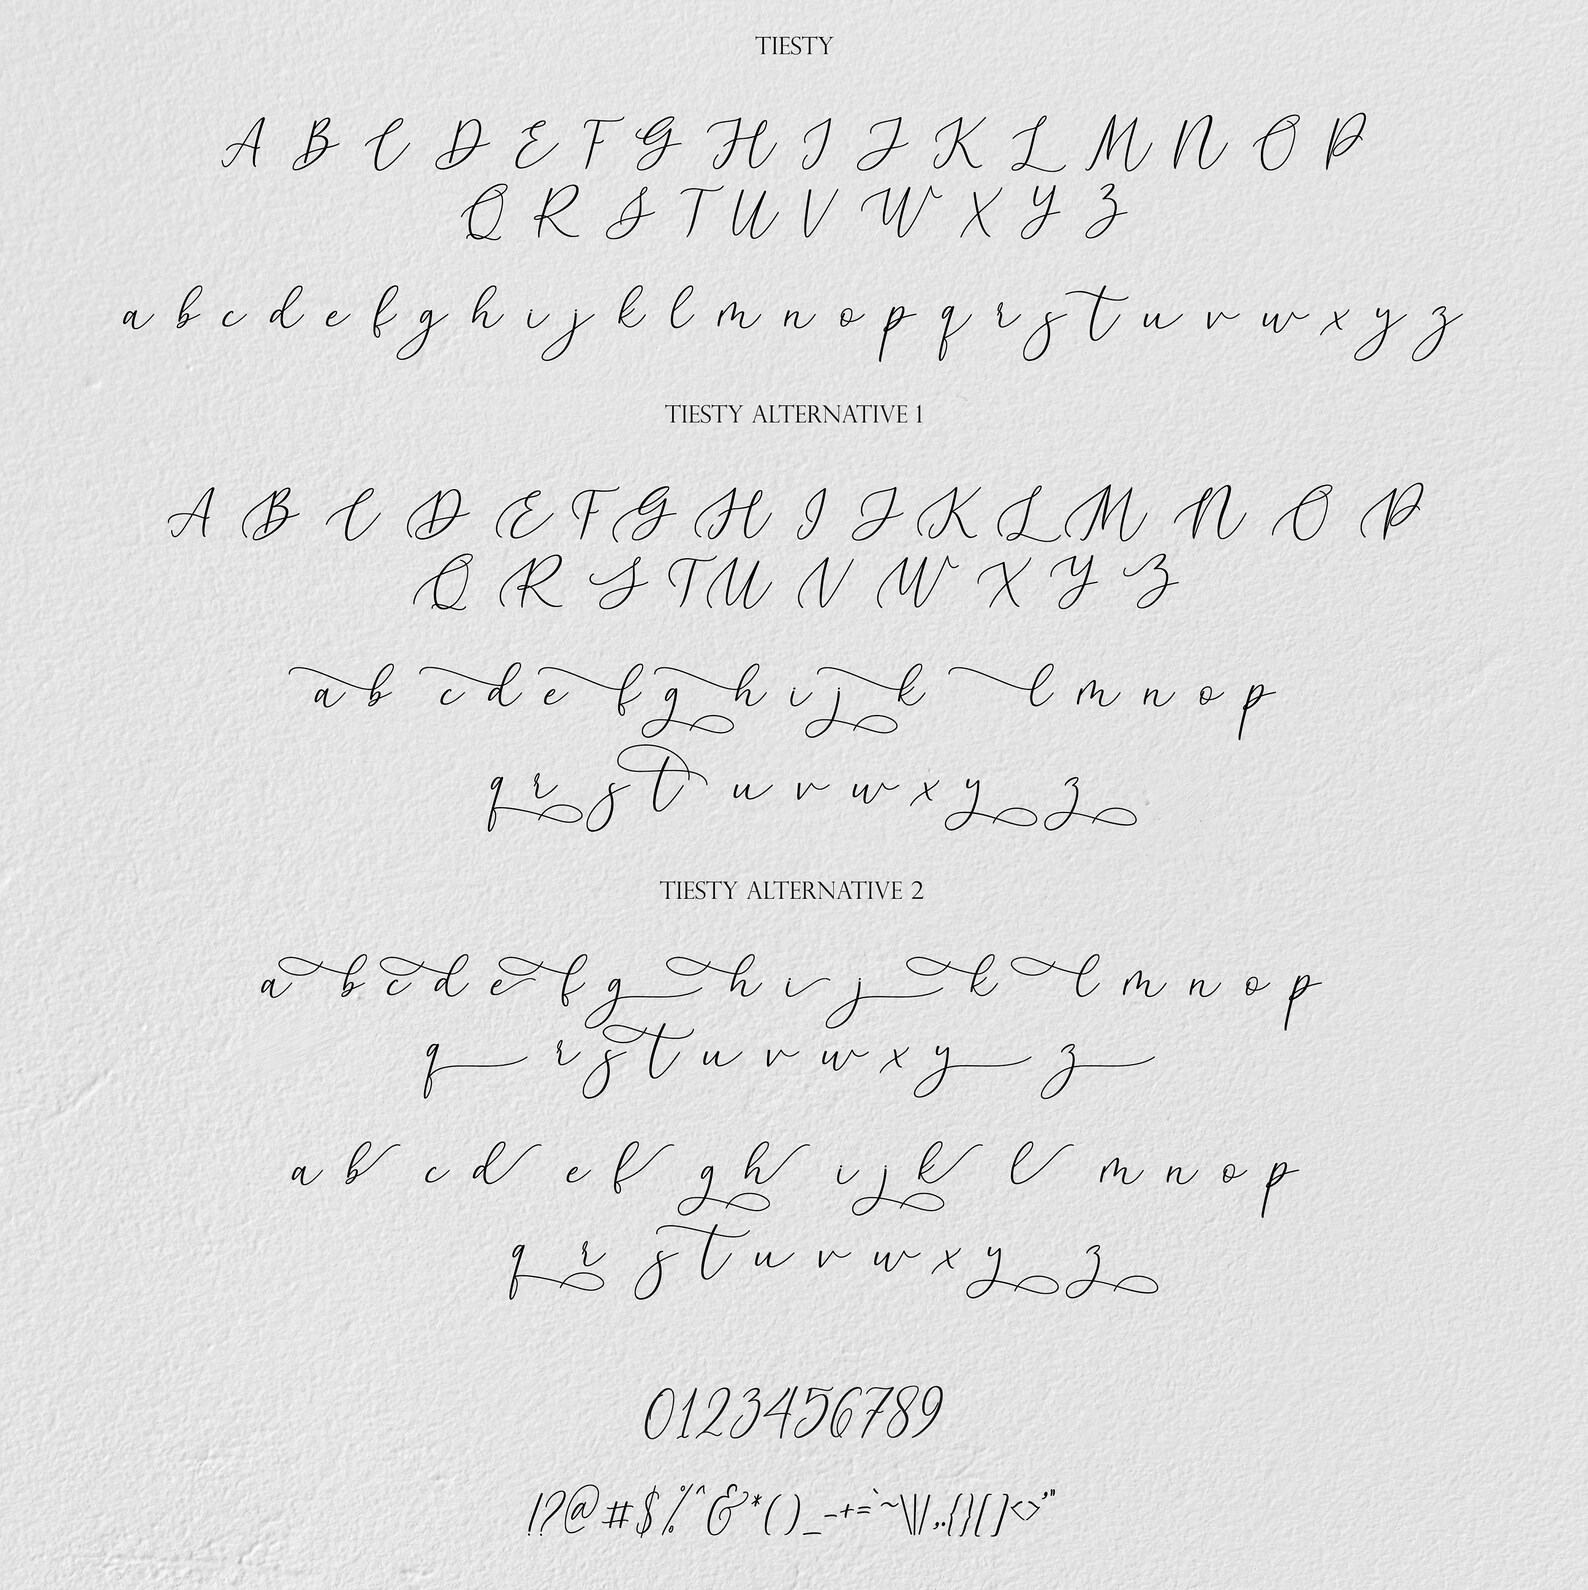 TIESTY
A B C D E F G H I J K L M N O P
Q R S T U V W X Y Z
a b c d e f g h i j k l m n o p q r s t u v w x y z
TIESTY ALTERNATIVE 1
A B C D E F G H I J K L M N O P
Q R S T U V W X Y Z
a b c d e f g h i j k l m n o p
q r s t u v w x y z
TIESTY ALTERNATIVE 2
a b c d e f g h i j k l m n o p
q r s t u v w x y z
a b c d e f g h i j k l m n o p
q r s t u v w x y z
0123456789
!?@#$%^&*()_-+=`~\|/,.{}[]<>'"